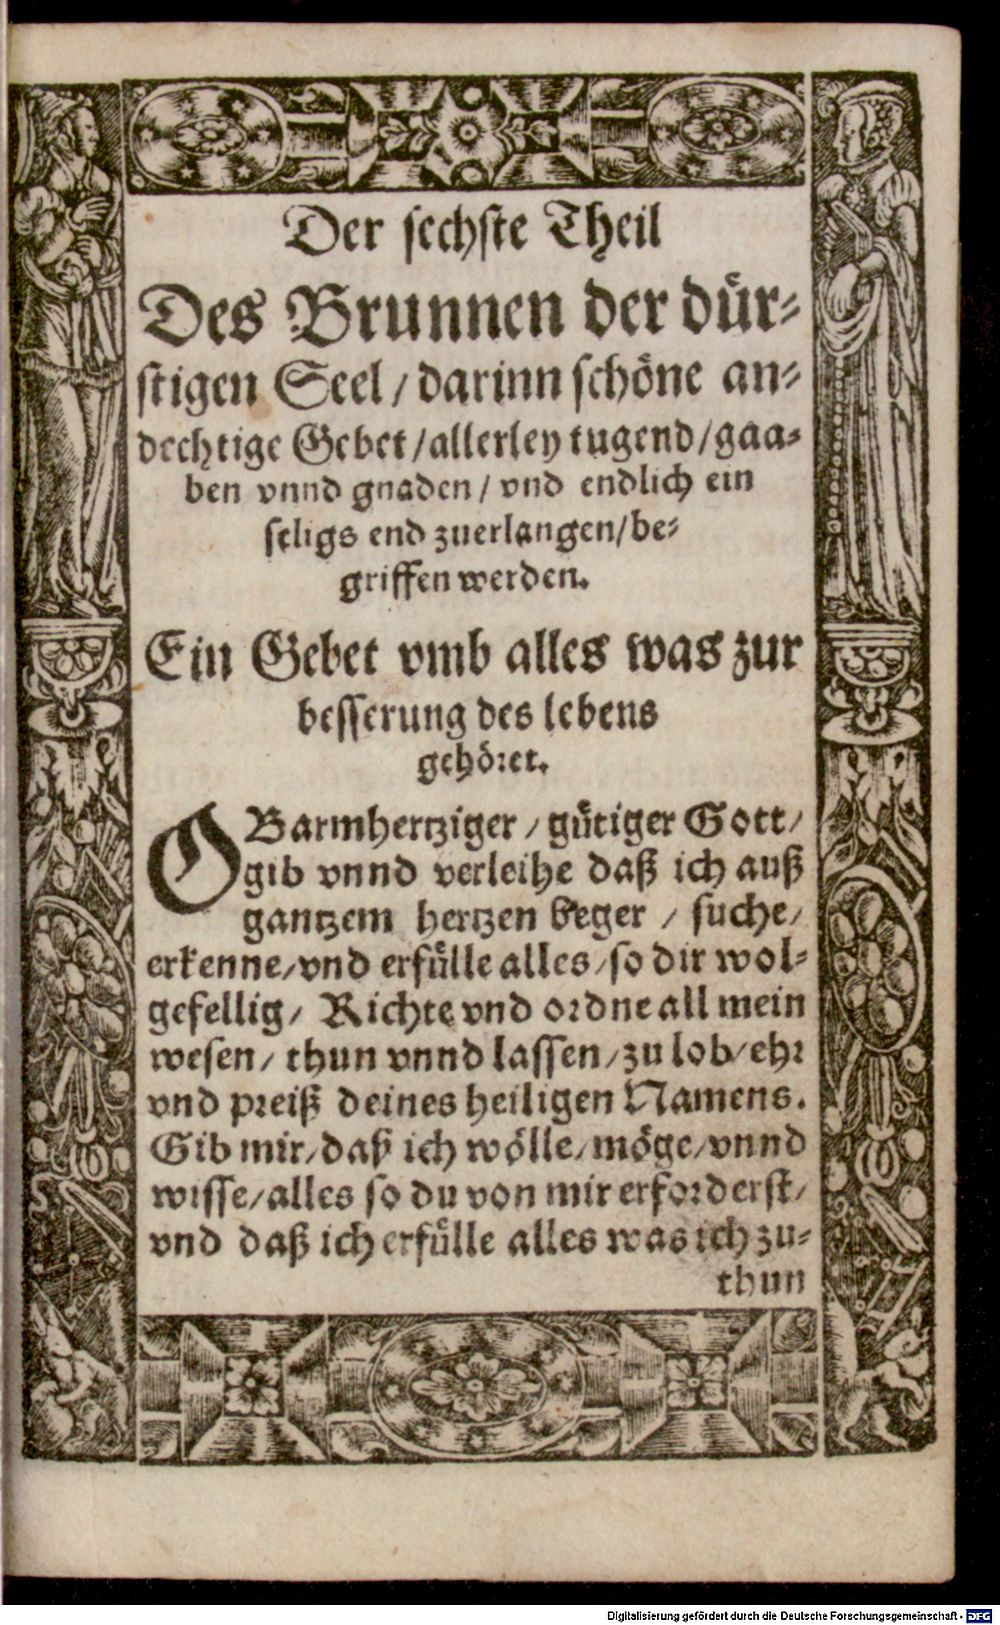 Der sechste Theil
Des Brunnen der dür⸗
stigen Seel / darinn schöne an⸗
dechtige Gebet / allerley tugend / gaa⸗
ben vnnd gnaden / vnd endlich ein
seligs end zuerlangen / be⸗
griffen werden.
Ein Gebet vmb alles was zur
besserung des lebens
gehöret.
O Barmhertziger / gütiger Gott /
gib vnnd verleihe daß ich auß
gantzem hertzen beger / suche /
erkenne / vnd erfülle alles / so dir wol⸗
gefellig / Richte vnd ordne all mein
wesen / thun vnnd lassen / zu lob / ehr
vnd preiß deines heiligen Namens.
Gib mir / daß ich wölle / möge / vnnd
wisse / alles so du von mir erforderst /
vnd daß ich erfülle alles was ich zu⸗
thun
Digitalisierung gefördert durch die Deutsche Forschungsgemeinschaft - DFG